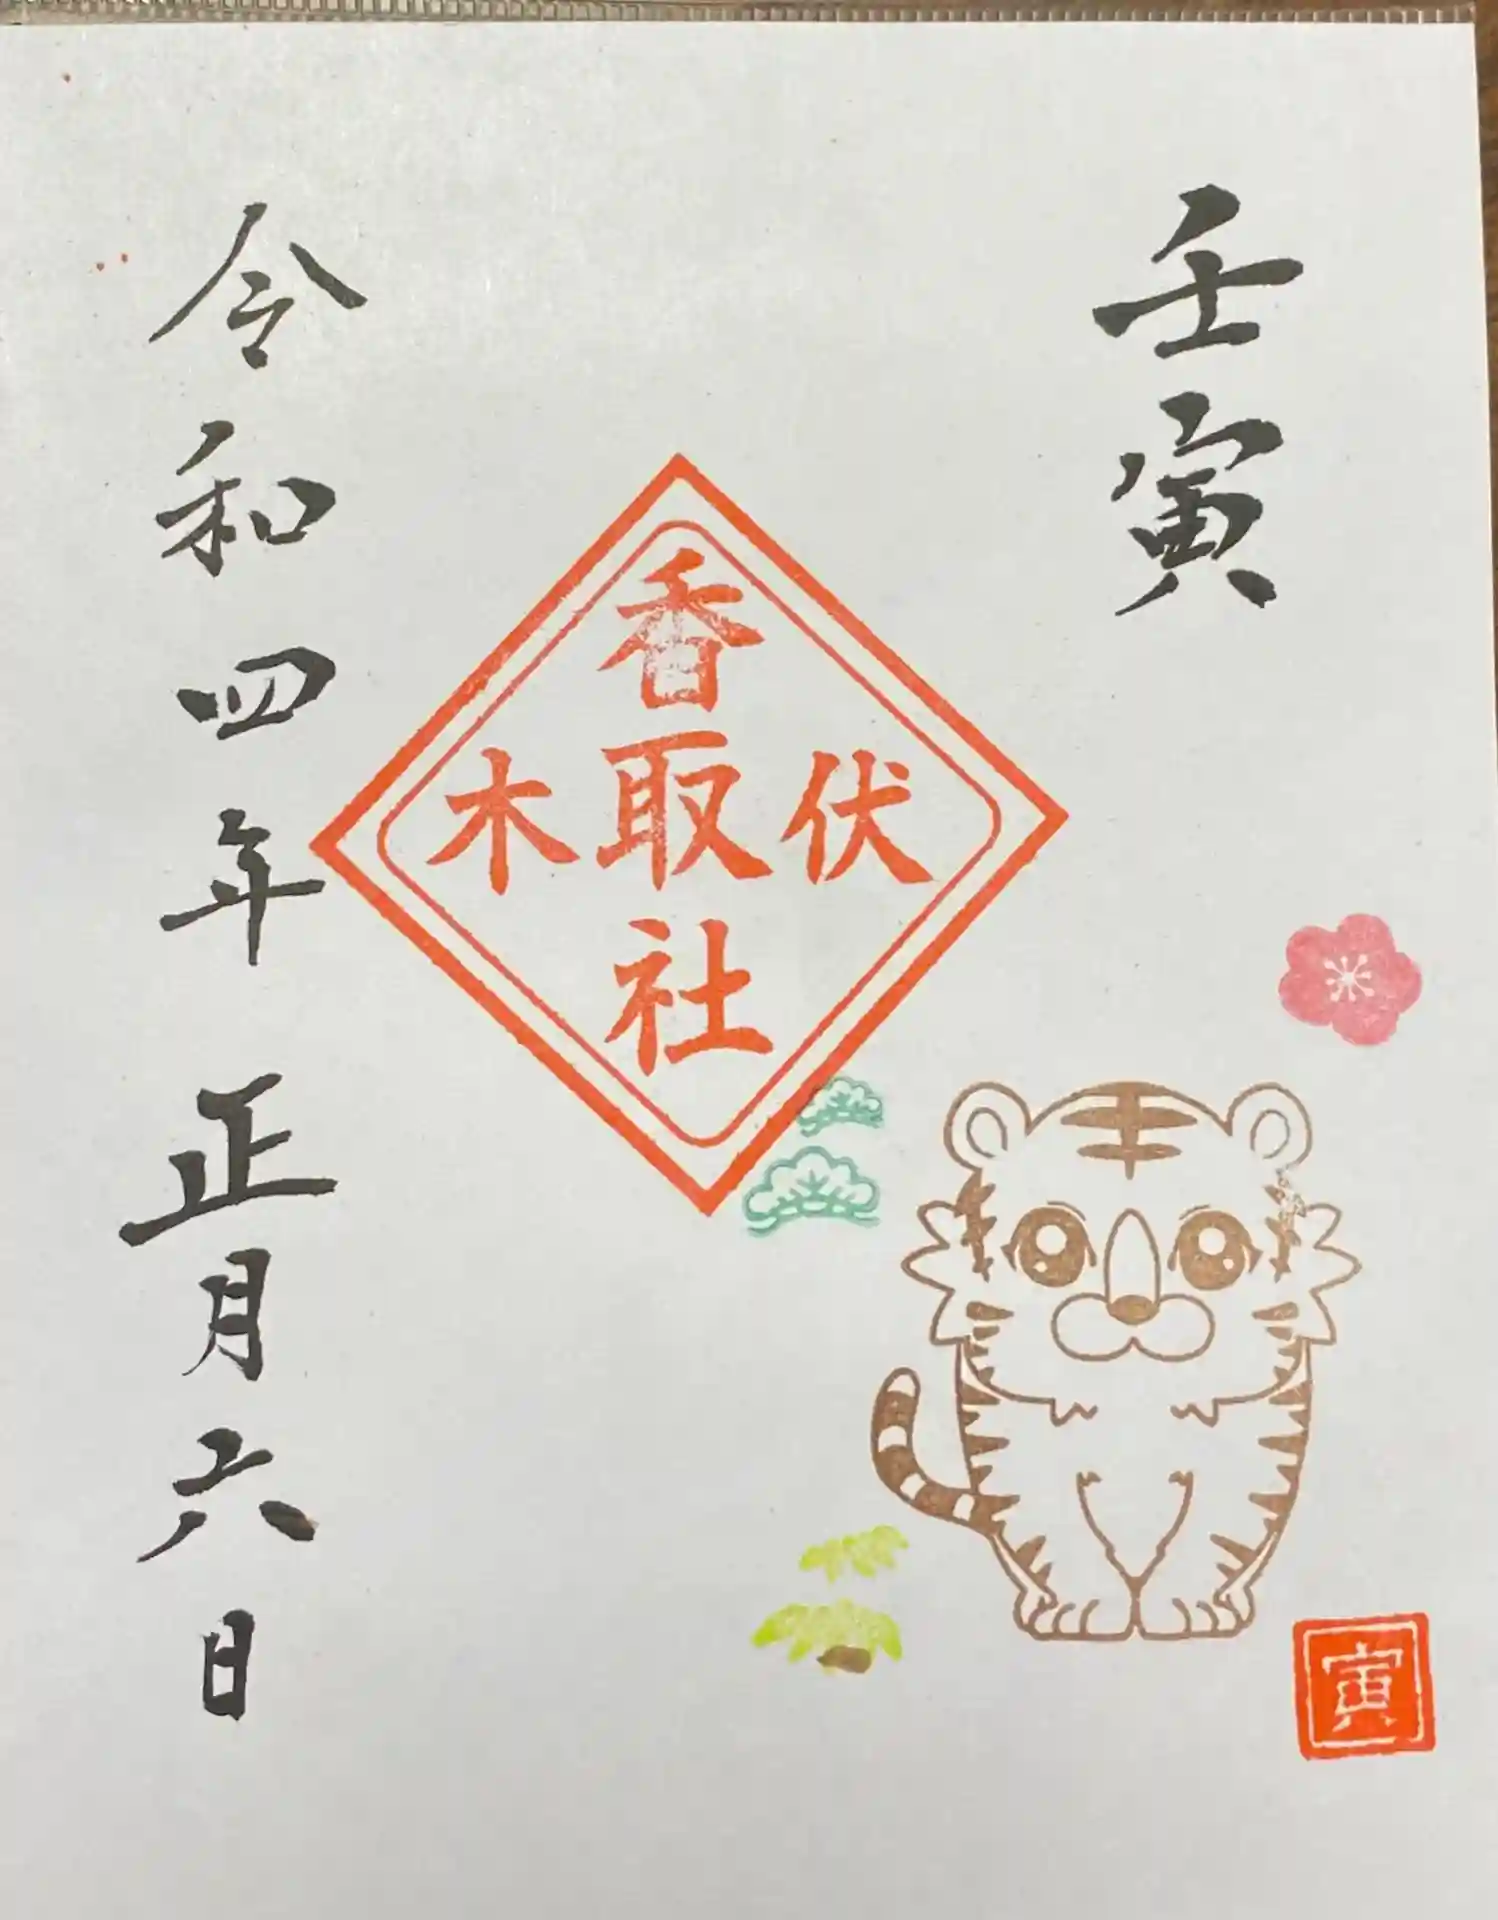 壬寅
伏木
香取社
寅
令和四年正月六日